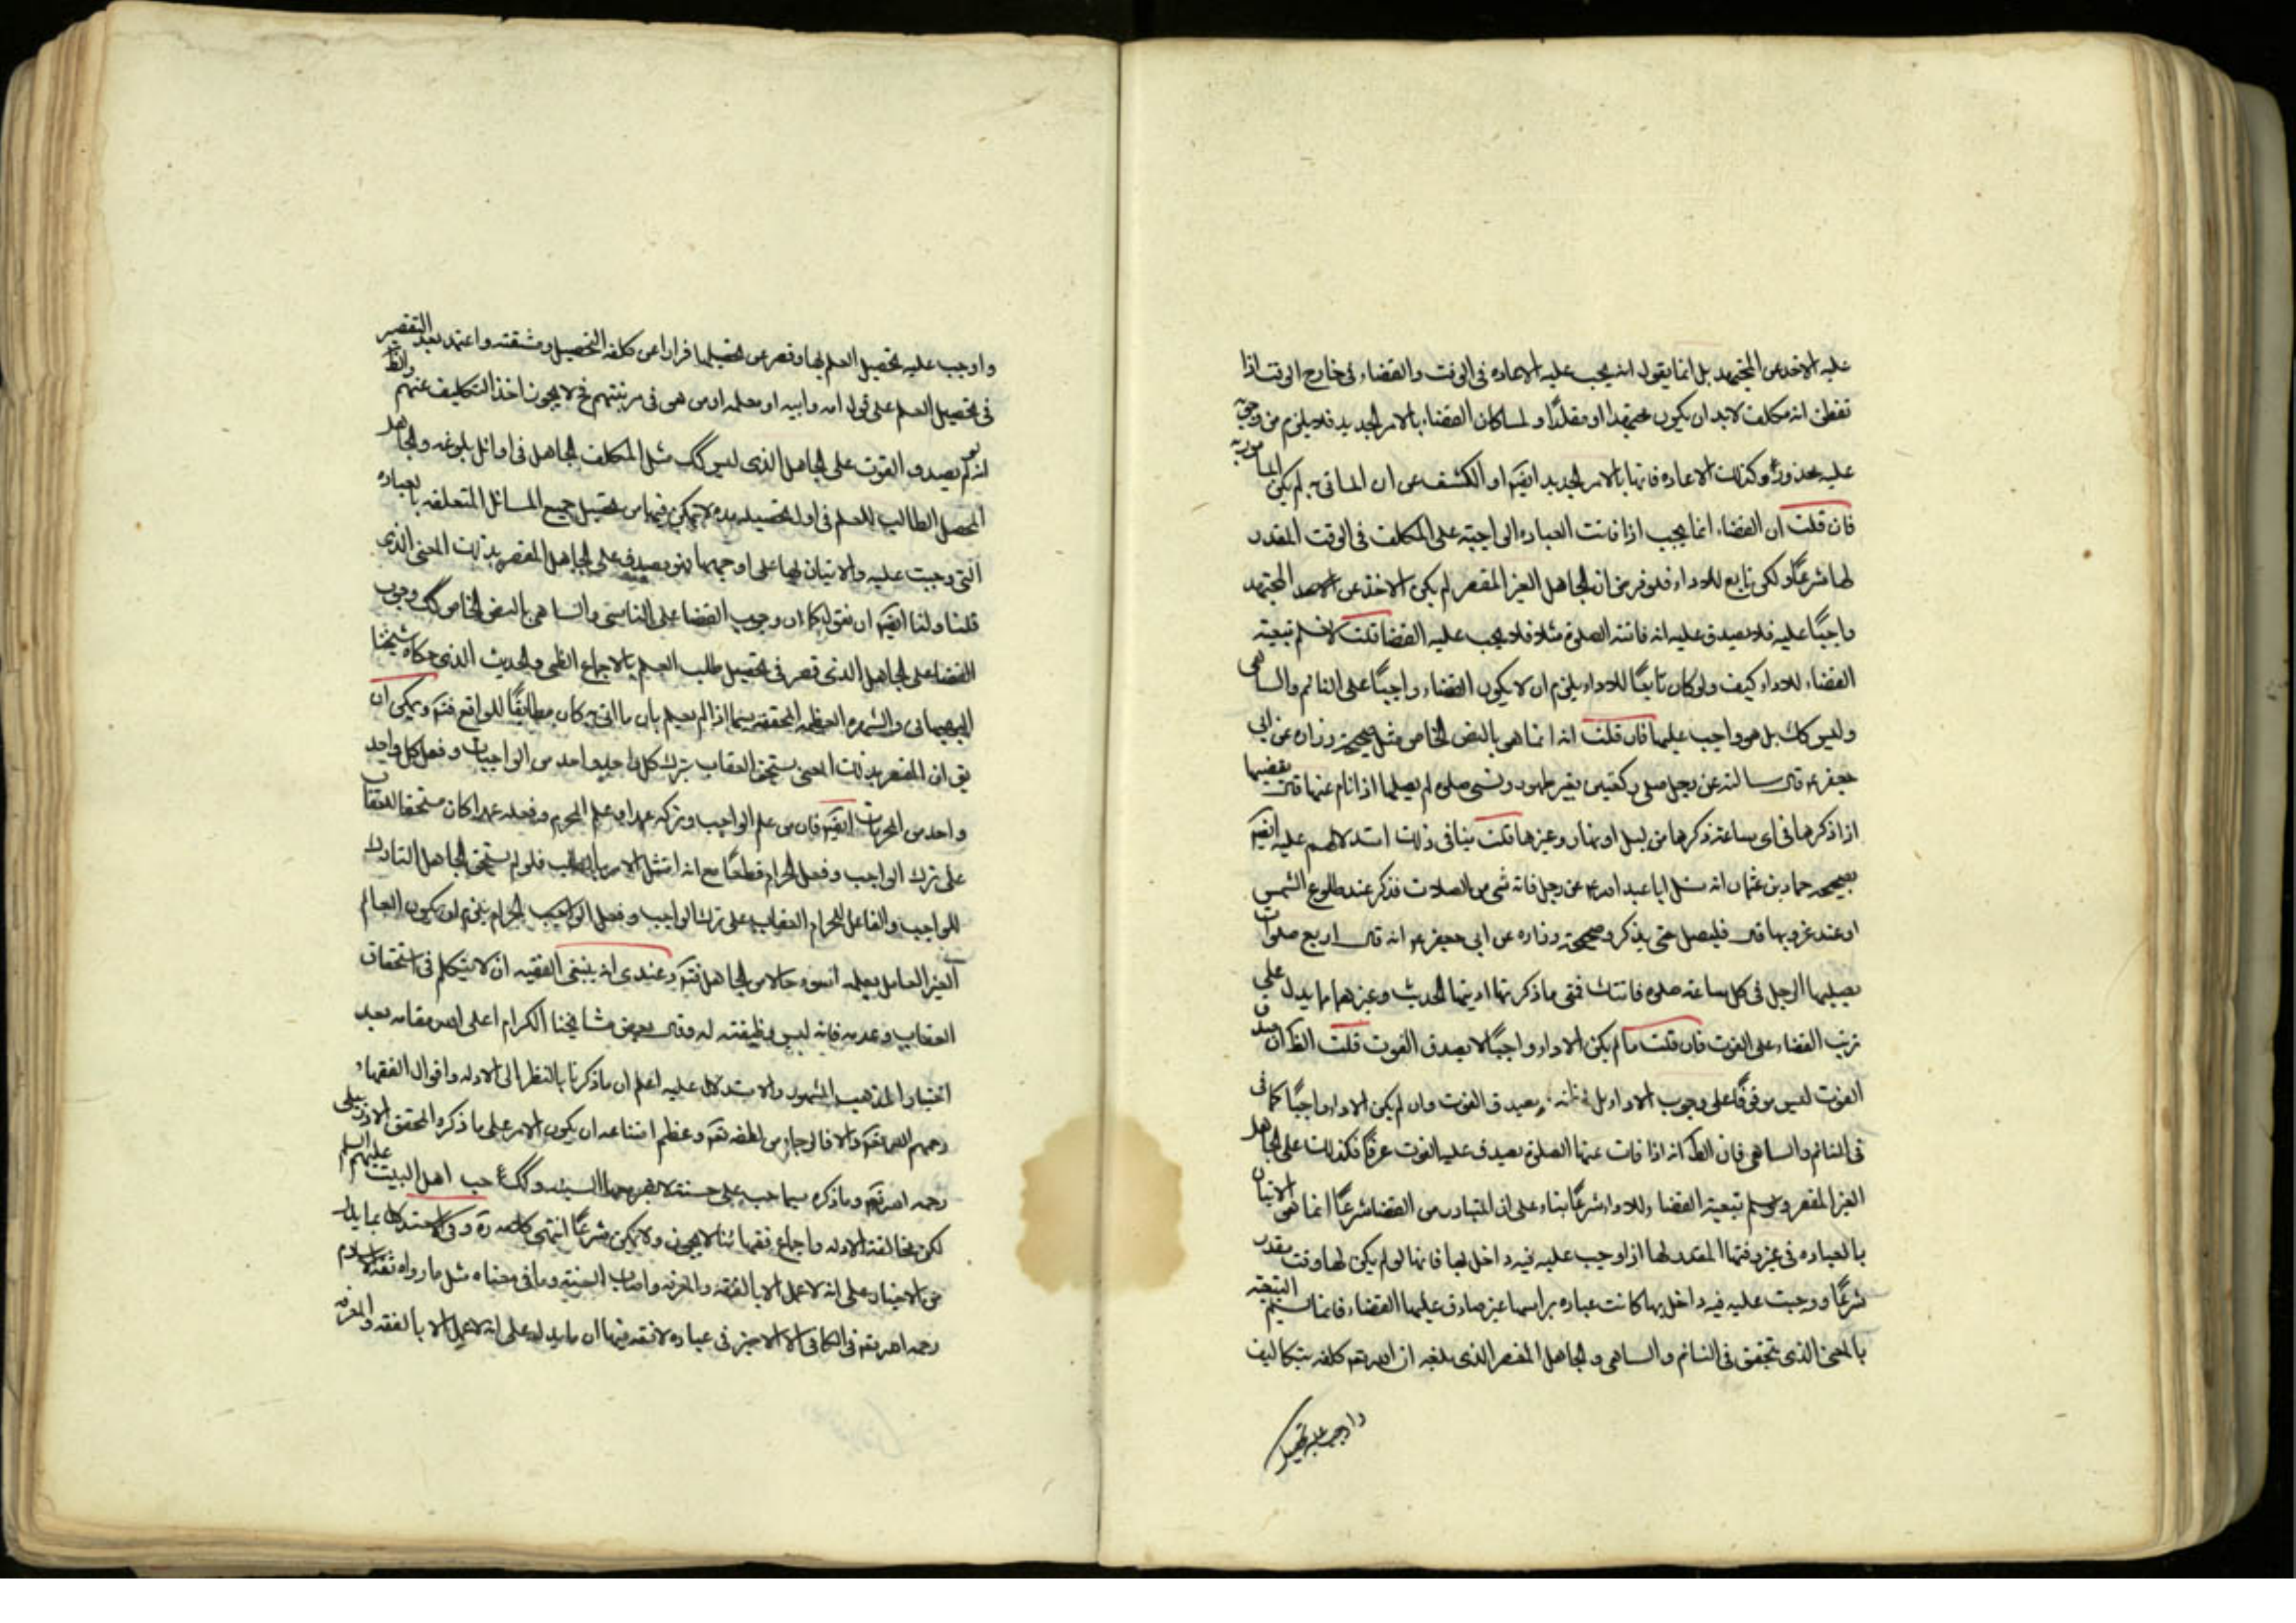 عليه الاخذ من المجتهد بل انما يقول انه يجب عليه الاعاده فى الوقت والقضاء فى خارج الوقت اذا
تفطن انه مكلف لابد ان يكون مجتهدا او مقلدا و لما كان القضاء بالامر الجديد فلا يلزم من وجوبه
عليه محذور وكذلك الاعاده فانها بالامر الجديد ايضا او الكشف عن ان الماتى به لم يكن المامور به
فان قلت ان القضاء انما يجب اذا فاتت العباده الواجبة على المكلف فى الوقت المقدر
لها شرعًا ولكن تابع للاداء فلو فرض ان الجاهل الغير المقصر لم يكن الاخذ عن المجتهد
واجبًا عليه فلا يصدق عليه انه فاتته الصلوة مثلا فلا يجب عليه القضا قلت لا نسلم تبعية
القضاء للاداء كيف ولو كان تابعًا للاداء يلزم ان لا يكون القضاء واجبًا على النائم والساهى
وليس كك بل هو واجب عليهما فان قلت انه انما هى بالنص الخاص مثل صحيحة زراره عن ابى
جعفر ع قال سالته عن رجل صلى ركعتين بغير طهور ونسى صلوة لم يصلها اذا نام عنها قال يقضيها
اذا ذكرها فى اى ساعة ذكرها من ليل او نهار وغيرها قلت ينافى ذلك استدلالهم عليه ايضا
بصحيحه حماد بن عثمان انه سئل ابا عبد الله ع عن رجل فاته شى من الصلات فذكر عند طلوع الشمس
او عند غروبها قال فليصل حتى يذكر وصحيحة زراره عن ابى جعفر ع انه قال اربع صلوات
يصليها الرجل فى كل ساعة صلوة فاتتك فمتى ما ذكرتها اديتها الحديث وغيرهما ما يدل على
ترتب القضاء على الفوت فان قلت ما لم يكن الاداء واجبًا لا يصدق الفوت قلت الظ ان صدق
الفوت ليس موقوفًا على وجوب الاداء بل يصدق الفوت وان لم يكن الاداء واجبًا كما فى
فى النائم والساهى فان الظ انه اذا فات عنها الصلوة يصدق عليه الفوت عرفًا فكذلك على الجاهل
الغير المقصر تبعية القضاء للاداء شرعًا بناء على ان المتبادر من القضا شرعًا انما هى الاتيان
بالعباده فى غير وقتها المقدر لها اذا وجب عليه فيه داخل لها فانها لو لم يكن لها وقت مقدر
شرعًا ووجبت عليه فيه داخل بها كانت عباده براسها غير صادق عليها القضاء فانما نسلم التبعية
بالمعنى الذى يتحقق فى النائم والساهى والجاهل المقصر الذى بلغه ان الله تع كلفه بتكاليف
واوجب عليه تحصيل
واوجب عليه تحصيل العلم بها وقصر عن تحصيلها فرارا عن كلفه التحصيل ومشقته واعتمد بعد التقصير
فى تحصيل العلم على قول امه وابيه او معلمه او من هو فى مرتبتهم ح لا يجوز اخذ التكليف عنهم والظ
انه لم يصدق الفوت على الجاهل الذى ليس كك مثل المكلف الجاهل فى اوائل بلوغه والجاهل
المحصل الطالب للعلم فى اول تحصيله مده لا يتمكن فيها من تحصيل جميع المسائل المتعلقه بالعباده
التى وجبت عليه والاتيان بها على وجهها نعم يصدق على الجاهل المقصر بذلك المعنى الذى
قلنا ولنا ايضا ان نقول كما ان وجوب القضا على الناسى والساهى بالنص الخاص كك وجوب
القضا على الجاهل الذى قصر فى تحصيل طلب العلم بالاجماع الظنى والحديث الذى حكاه شيخنا
البهبهانى والشهره العظيمه المحققه سيما اذا لم يعلم بان ما اتى به كان مطابقًا للواقع فتم ويمكن ان
يق ان المقصر بذلك المعنى يستحق العقاب بترك كل واحد واحد من الواجبات وفعل كل واحد
واحد من المحرمات ايضا فان من علم الواجب وتركه عمدا وعلم المحرم وفعله عمدا كان مستحقا للعقاب
على ترك الواجب وفعل الحرام قطعًا مع انه امتثل الامر بالطلب فلو لم يستحق الجاهل التارك
للواجب والفاعل للحرام العقاب على ترك الواجب وفعل الحرام يلزم ان يكون العالم
الغير العامل بعلمه اسوء حالا من الجاهل فتم وعندى انه ينبغى الفقيه ان لا يتكلم فى استحقاق
العقاب وعدمه فانه ليس وظيفته له وقال بعض مشايخنا الكرام اعلى الله مقامه بعد
اختيار المذهب المشهور والاستدلال عليه اعلم ان ما ذكرنا بالنظر الى الادله واقوال الفقهاء
رحمهم الله تع والا فالرجاء من لطفه تع وعظم امتناعه ان يكون الامر على ما ذكره المحقق الاردبيلى
رحمه الله تع وما ذكره سيما حب على حسنة لا يضر معها السيئه وكك حب اهل البيت عليهم السلم
لكن مخالفة الادله واجماع فقهائنا لا يجوز ولا يمكن شرعًا انتهى كلامه ره وفى الاستدلال بما يدل
من الاخبار على انه لا عمل الا بالفقه والمعرفه واصابة السنة وما فى معناه مثل ما رواه ثقة الاسلام
رحمه الله تع فى الكافى الا لا خير فى عباده لا فقه فيها ان ما يدل على انه لا عمل الا بالفقه والمعرفه